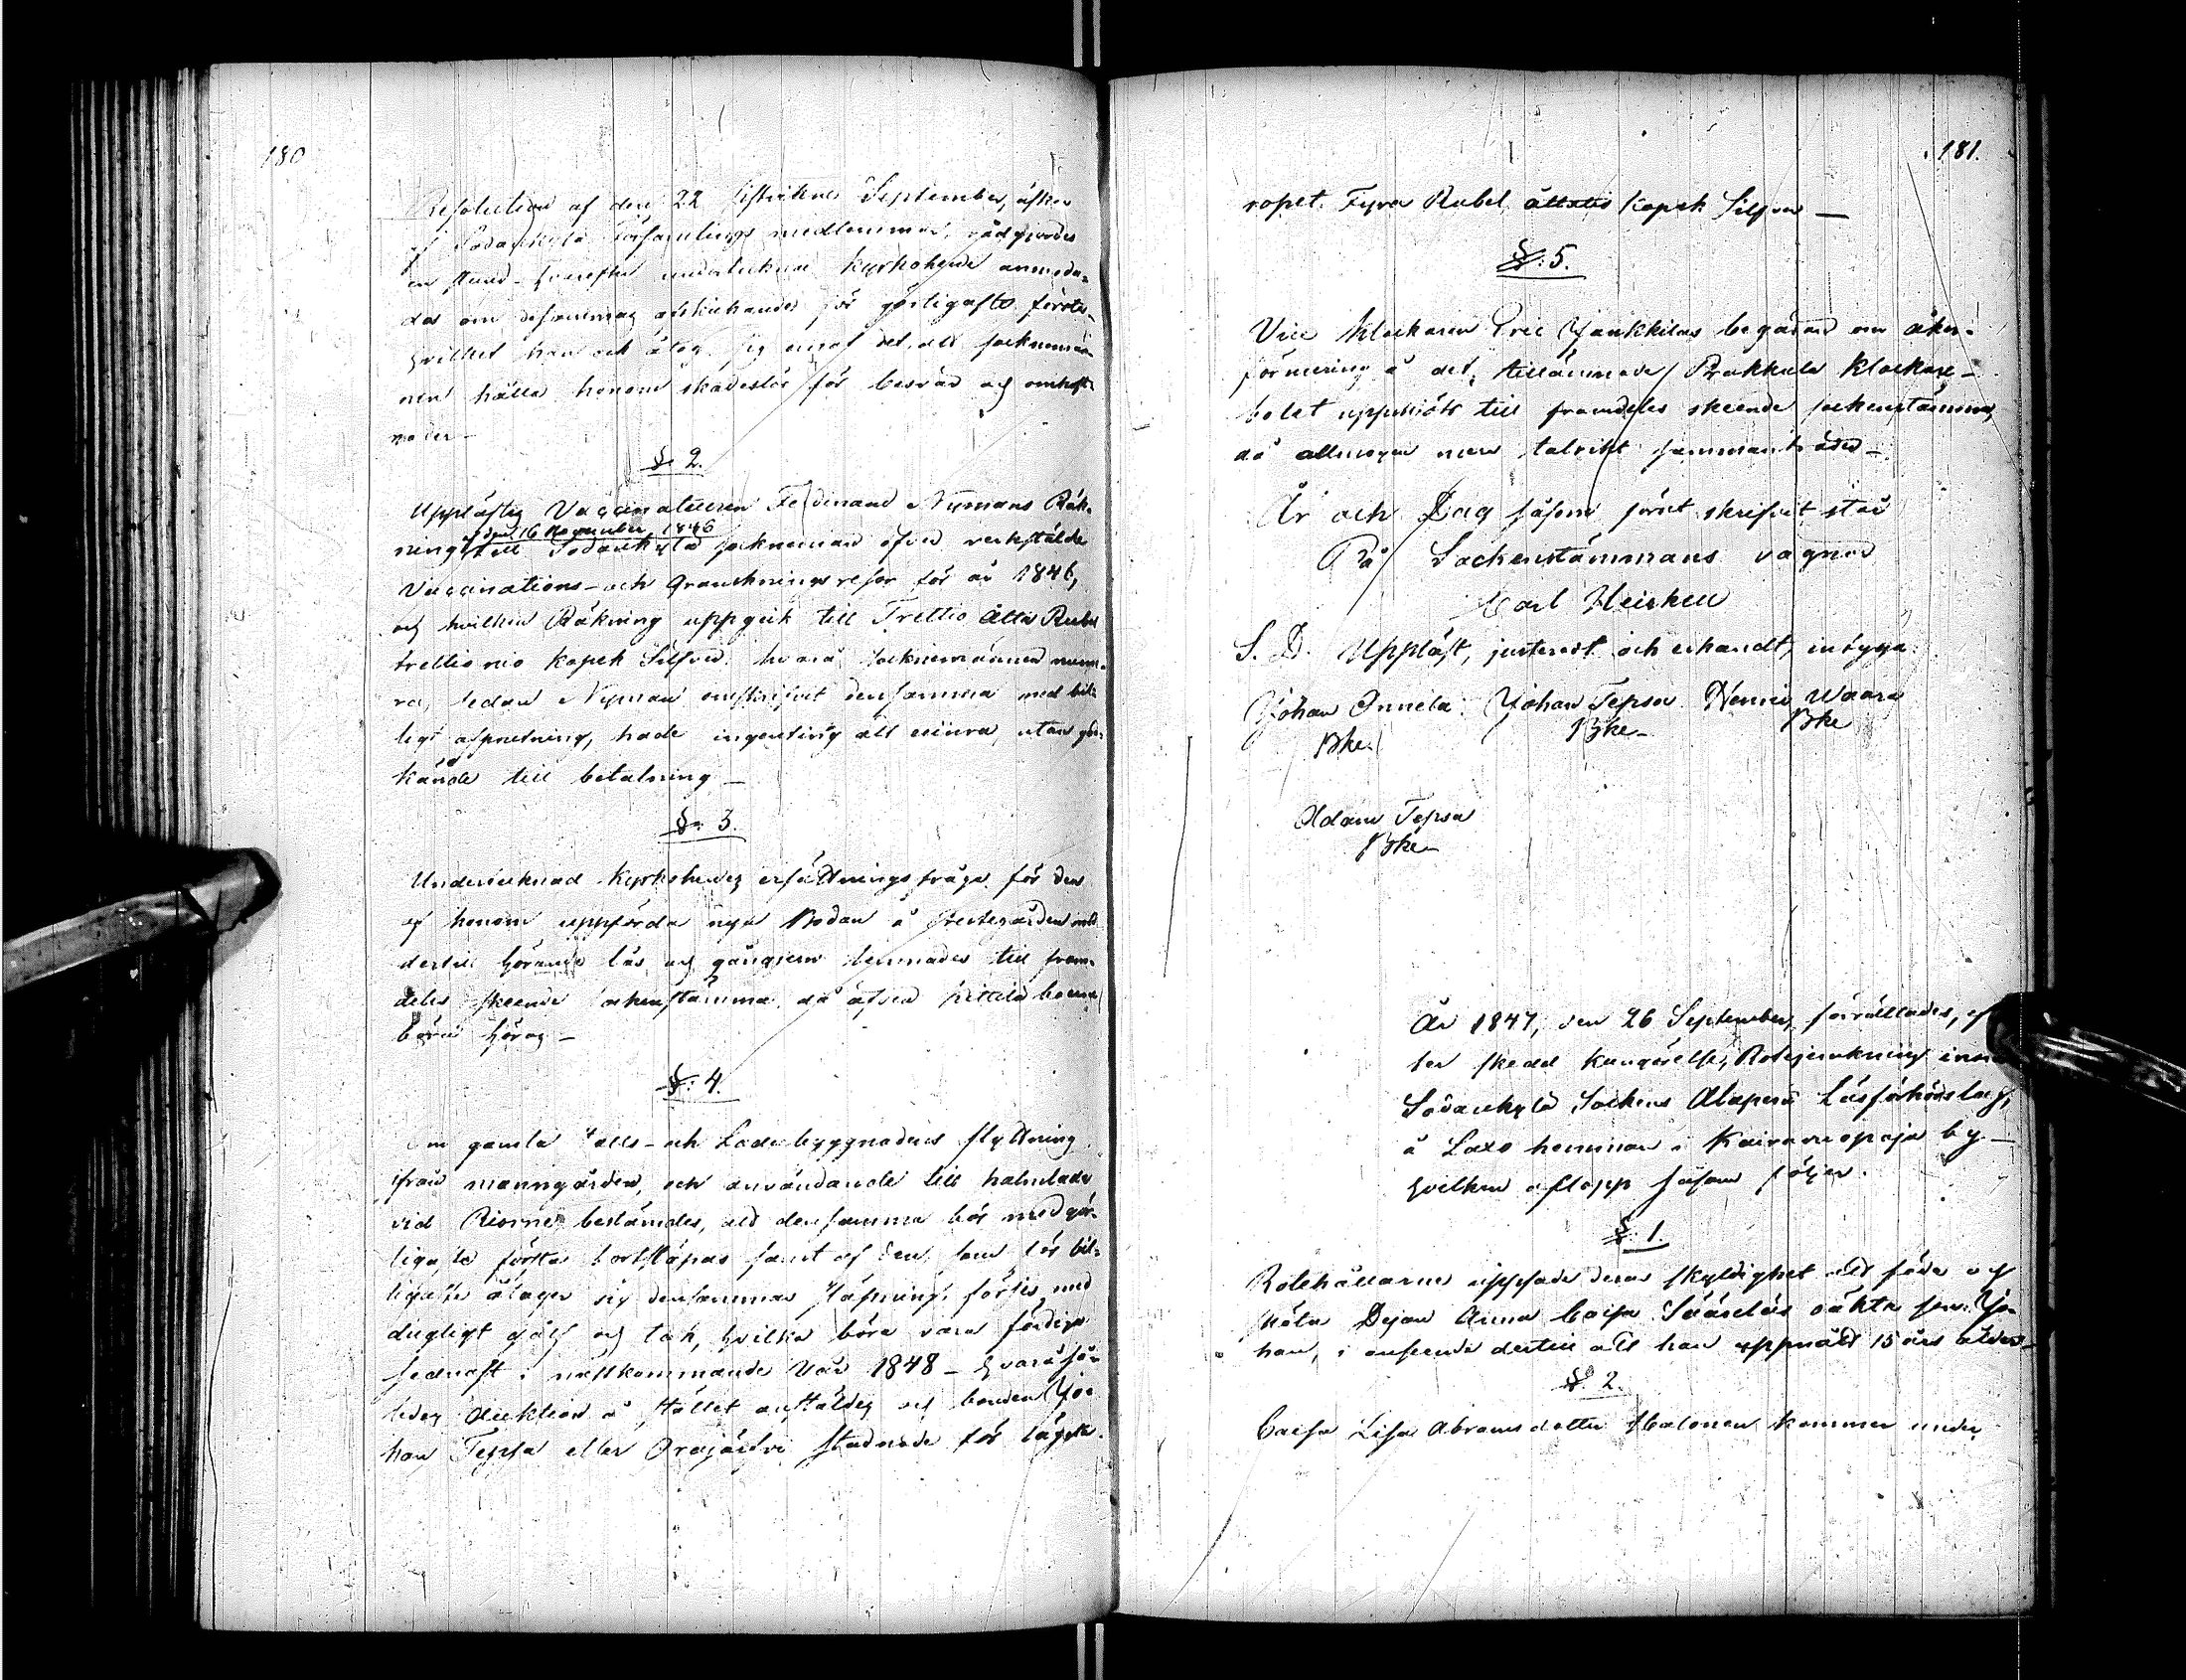 180
Resolution af den 22 sistvikne September, åfven
af Sodankylä församlings medlemmar, rådgjordes
en stund hvarefter undertecknad Kyrkoherde anmoda-
des om desamma afskickande för görligaste första
hvilket han och åtog sig emot det att socknemän-
nen hålla honom skadeslös för besvär och omkost-
nader —
§ 2.
Upplästes Vaccinateuren Ferdinand Nymans Räk-
af den 16 November 1846
ning till Sodankylä socknemän öfver verkstälde
Vaccinations- och Granskningsresor för år 1846,
och hvilken Räkning uppgick till Trettio Åtta Rubel
trettio nio Kopek Silfver hvarå socknemännen numme-
ra, sedan Nyman omskrifvit densamma med bil-
ligt afprutning, hade ingenting att erinra, utan god-
kände till betalning —
§: 3.
Undertecknad Kyrkoherdes ersättningsfråga för den
af honom uppförda nya Bodan å Prestegården med
dertill hörande lås och gångjern lemnades till fram-
deles skeende sockenstämma då äfven Kittilä boerne
böra höras —
§: 4.
Om gamla Talls- och Ladubyggnadens flyttning
ifrån manngården, och användande till halmlada
vid Riorne bestämdes, att densamma bör med gör-
ligaste första bortsläpas samt af den, som för bil-
ligaste åtager sig densammas släpning, förses med
dugligt golf och tak, hvilka böra vara färdiga
sednast i nästkommande Vår 1848 — hvarå så-
ledes Auktion å stället anställdes och bonden Jo-
han Tepsa eller Orajärvi stadnade för lägsta

181.
ropet Fyra Rubel åttatio Kopek Silfver —
§: 5.
Vice Klockaren Eric Jankkilas begäran om åker-
förmering å det, tillämnade Prakkula Klockare-
bolet uppsköts till framdeles skeende sockenstämma,
då allmogen mera talrikt sammanträder —
År och Dag såsom förut skrifvit står
På Sockenstämmans vägnar
Carl Heickell
S. D. Uppläst, justeradt och erkändt, intyga:
Johan Onnela Johan Tepsa Henric Waara
Bke. Bke — Bke
Adam Tepsa
Bke —
År 1847, den 26 September, förrättades, ef-
ter skedd kungörelse, Rotejemkning inom
Sodankylä Sockens Alaperä Läsförhörslag,
å Laxo hemman i Kairavuopaja by —
hvilken aflopp såsom följer.
§. 1.
Rotehållarne uppsade deras skyldighet att föda och
sköta Dejan Anna Caisa Sääreläs oäkta son Jo-
han, i anseende dertill att han uppnådt 15 års ålder —
§. 2.
Caisa Lisa Abramsdotter Halonen kommer under